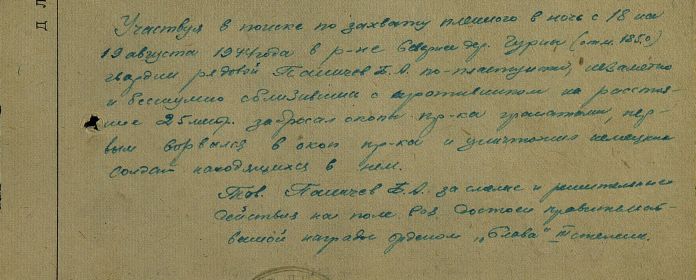 Участвуя в поиске по захвату пленного в ночь с 18 на
19 августа 1944 года в р-не севернее дер. Гурны (отм. 185,0)
гвардии рядовой Памичев Б. А. по-пластунски, незаметно
и бесшумно сблизившись с противником на расстоя-
ние 25 метр. забросал окопы пр-ка гранатами, пер-
вым ворвался в окоп пр-ка и уничтожил немецких
солдат находящихся в нем.
Тов. Памичев Б. А. за смелые и решительные
действия на поле боя достоин правительст-
венной награды орденом „Слава" III степени.